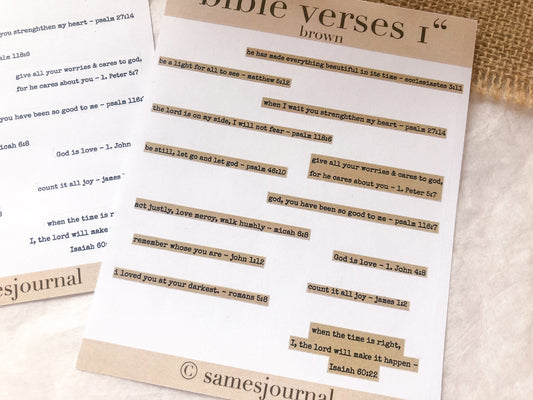 bible verses 1“
brown
he has made everything beautiful in its time - ecclesiastes 3:11
be a light for all to see - matthew 5:12
when I wait you strenghthen my heart - psalm 27:14
the lord is on my side, I will not fear - psalm 118:6
be still, let go and let god - psalm 46:10
give all your worries & cares to god,
for he cares about you - 1. Peter 5:7
god, you have been so good to me - psalm 116:7
act justly, love mercy, walk humbly - micah 6:8
remember whose you are - john 1:12
God is love - 1. John 4:8
i loved you at your darkest. - romans 5:8
count it all joy - james 1:2
when the time is right,
I, the lord will make it happen -
Isaiah 60:22
© samesjournal
you strenghthen my heart - psalm 27:14
psalm 118:6
give all your worries & cares to god,
for he cares about you - 1. Peter 5:7
you have been so good to me - psalm
micah 6:8
God is love - 1. John
count it all joy - james
when the time is
I, the lord will make
Isaiah 60:
mesjournal